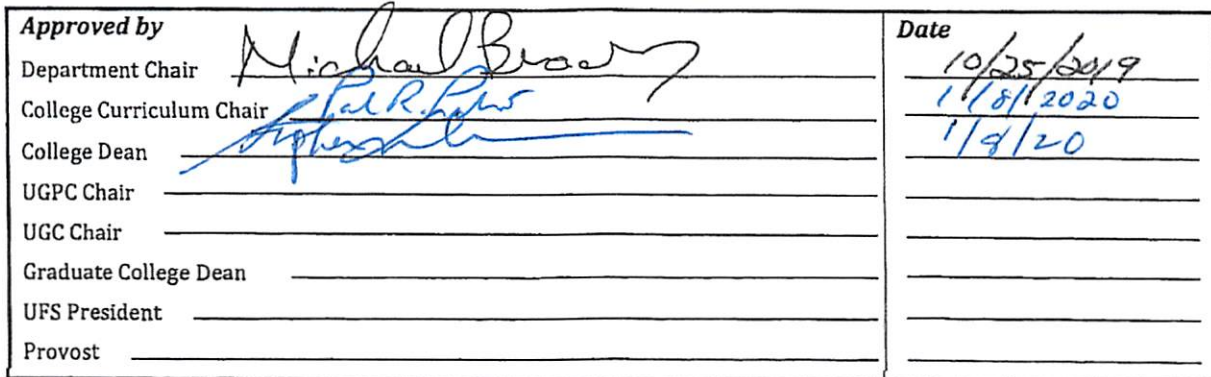 Approved by Date
Department Chair Michael Brady 10/25/2019
College Curriculum Chair 1/8/2020
College Dean 1/8/20
UGPC Chair
UGC Chair
Graduate College Dean
UFS President
Provost